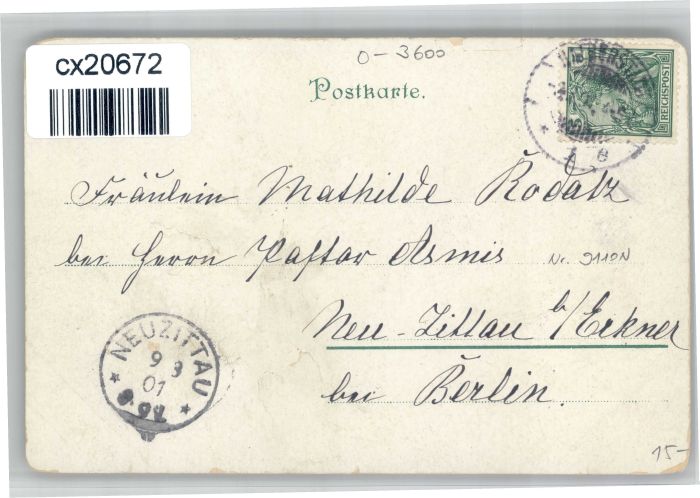 cx20672
0-3600
Postkarte.
REICHSPOST
Fräulein Mathilde Rodatz
bei Herrn Pastor Asmis
Nr. 9110N
Neu-Zittau b/Erkner
bei Berlin.
NEUZITTAU
9 3
01
15-